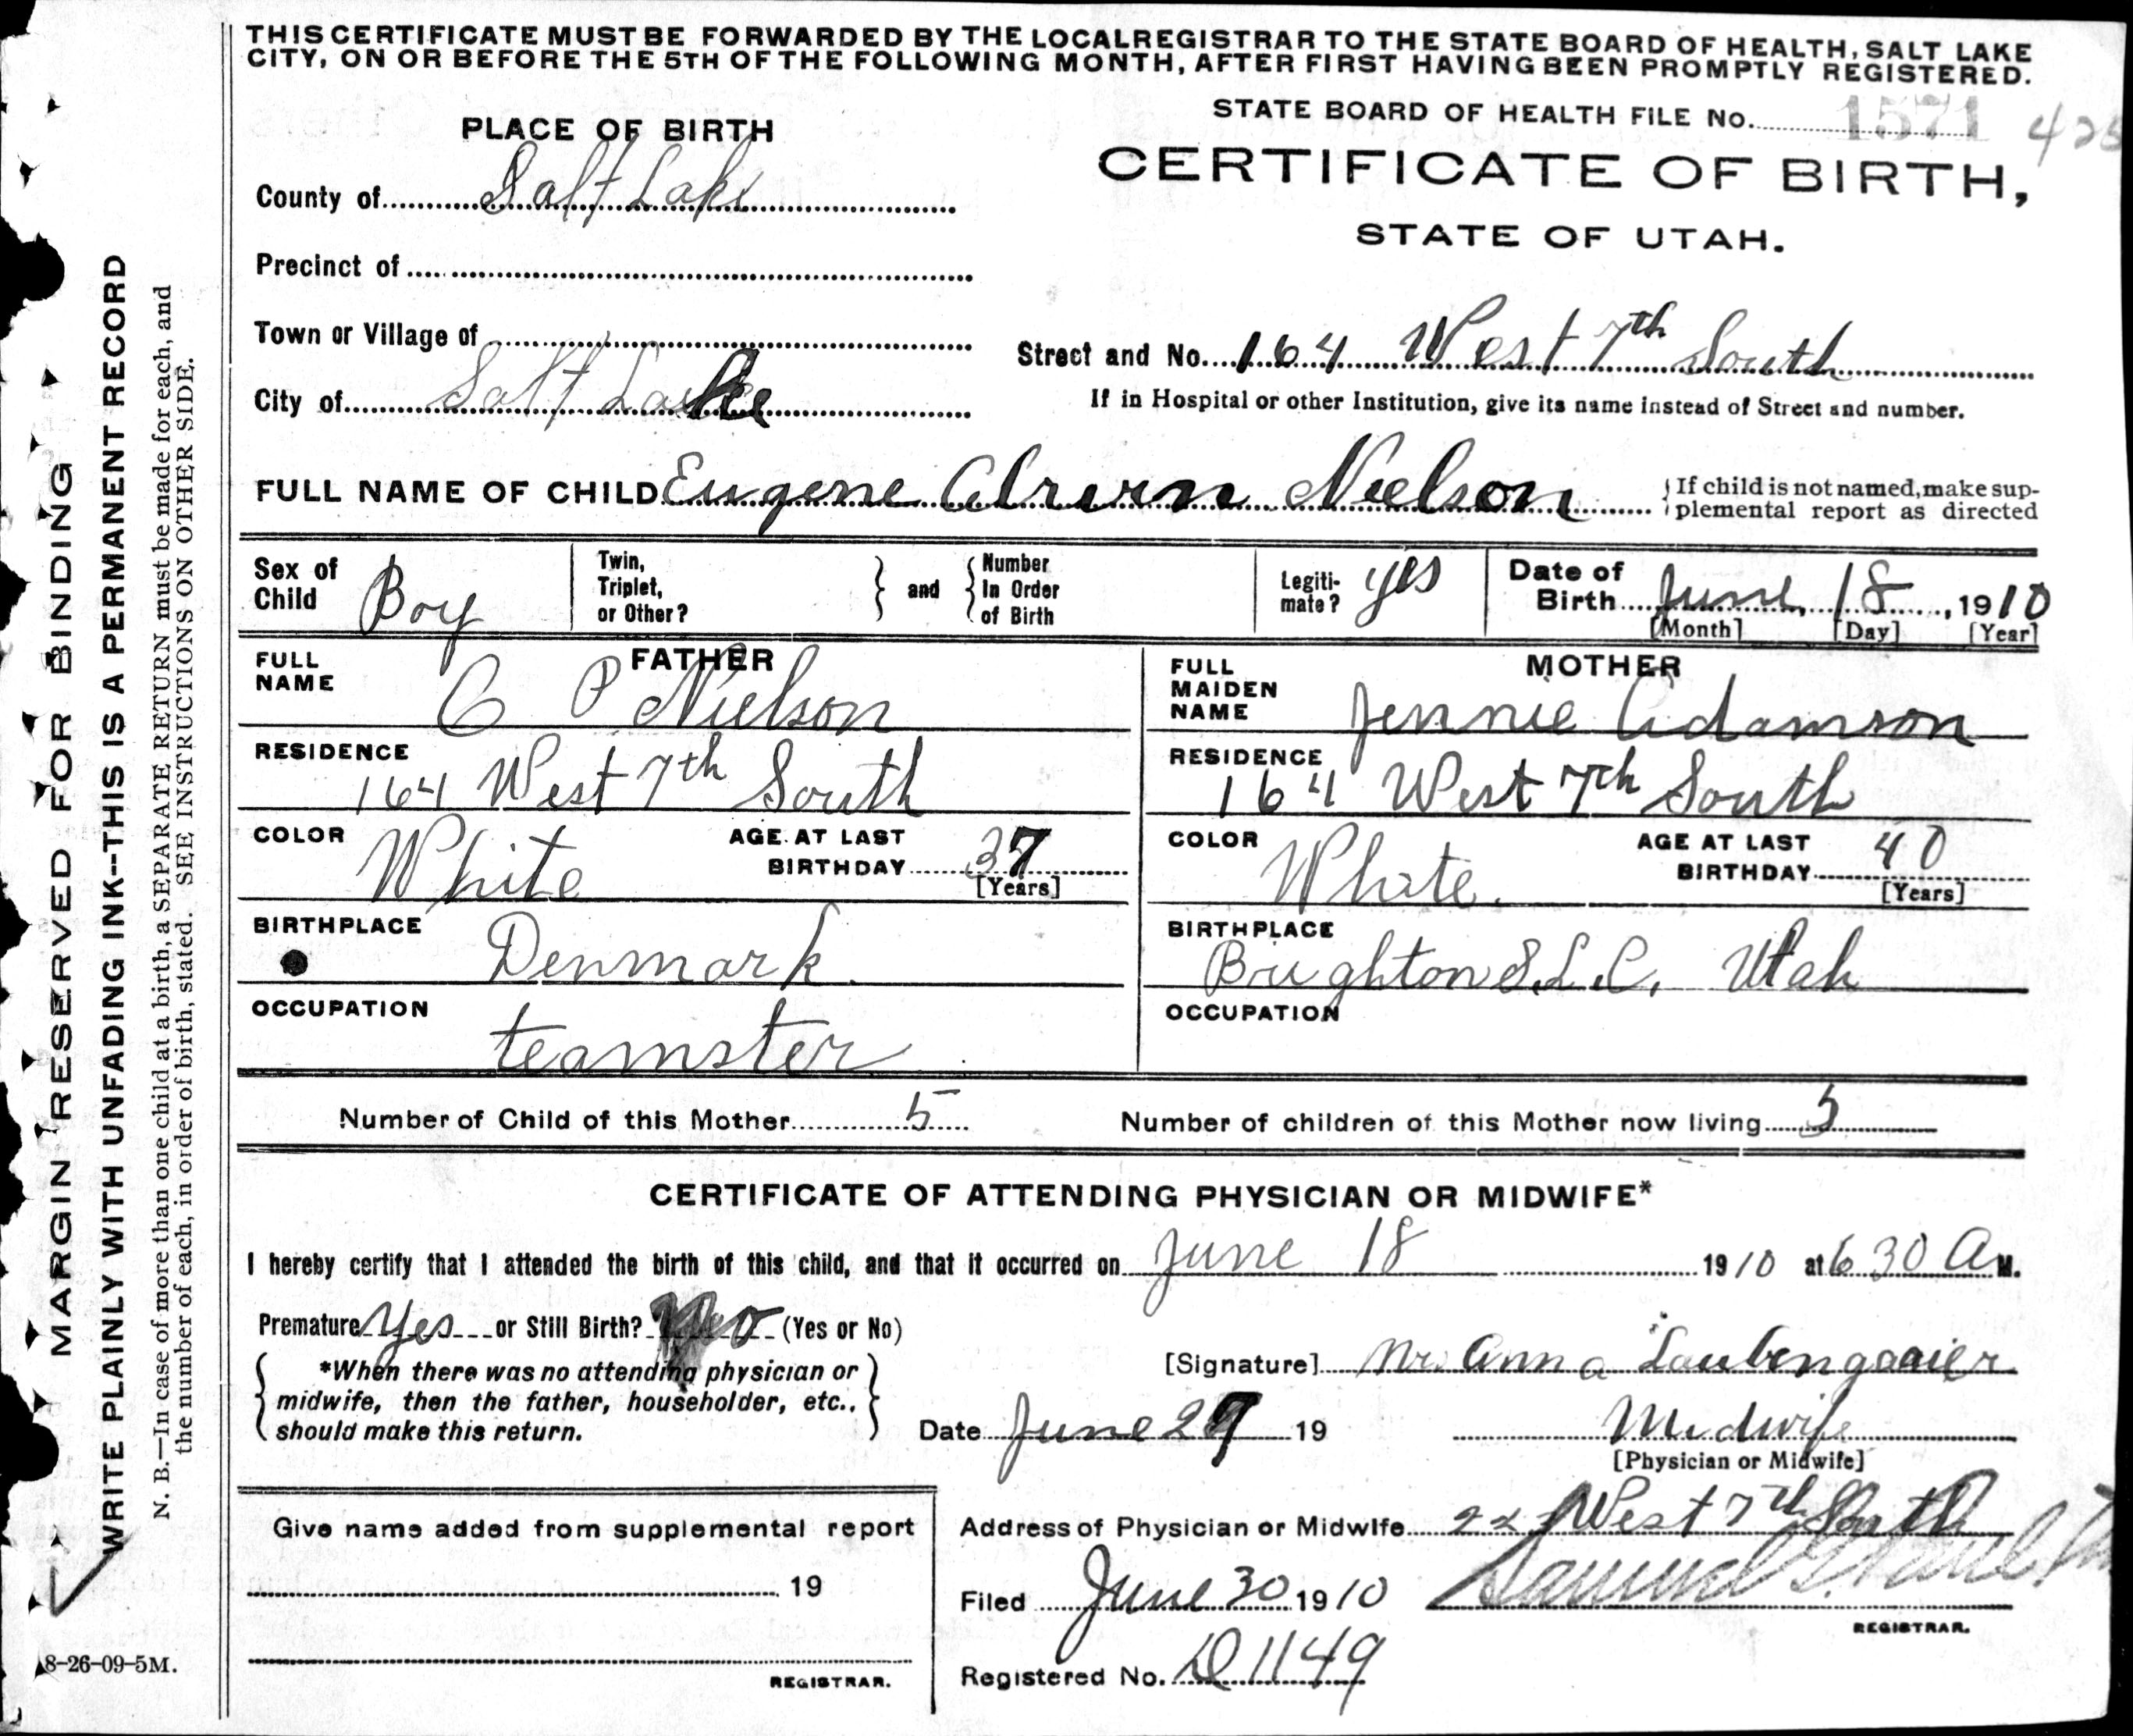 THIS CERTIFICATE MUST BE FORWARDED BY THE LOCAL REGISTRAR TO THE STATE BOARD OF HEALTH, SALT LAKE
CITY, ON OR BEFORE THE 5TH OF THE FOLLOWING MONTH, AFTER FIRST HAVING BEEN PROMPTLY REGISTERED.
STATE BOARD OF HEALTH FILE No. 1571 425
PLACE OF BIRTH
CERTIFICATE OF BIRTH,
STATE OF UTAH.
County of Salt Lake
Precinct of
Town or Village of
Street and No. 164 West 7th South
City of Salt Lake
If in Hospital or other Institution, give its name instead of Street and number.
FULL NAME OF CHILD Eugene Nielson
If child is not named, make sup-
plemental report as directed
Sex of Child Boy
Twin, Triplet, or Other?
and
Number In Order of Birth
Legiti-mate? yes
Date of Birth June 18, 1910
[Month] [Day] [Year]
FATHER
FULL NAME C P Nielson
RESIDENCE
164 West 7th South
COLOR White
AGE AT LAST BIRTHDAY 37
[Years]
BIRTHPLACE
Denmark.
OCCUPATION
teamster
MOTHER
FULL MAIDEN NAME Jennie Adamson
RESIDENCE
164 West 7th South
COLOR White.
AGE AT LAST BIRTHDAY 40
[Years]
BIRTHPLACE
Brighton S.L.C. Utah
OCCUPATION
Number of Child of this Mother 5
Number of children of this Mother now living 5
CERTIFICATE OF ATTENDING PHYSICIAN OR MIDWIFE*
I hereby certify that I attended the birth of this child, and that it occurred on June 18 1910 at 6 30 A M.
Premature Yes or Still Birth? No (Yes or No)
*When there was no attending physician or
midwife, then the father, householder, etc.,
should make this return.
[Signature] Anna Laubengaaier
Date June 29 19
Midwife
[Physician or Midwife]
Give name added from supplemental report
19
REGISTRAR.
Address of Physician or Midwife West 7th South
Filed June 30 1910 Samuel G. Paul
REGISTRAR.
Registered No. D1149
MARGIN RESERVED FOR BINDING
WRITE PLAINLY WITH UNFADING INK--THIS IS A PERMANENT RECORD
N. B.—In case of more than one child at a birth, a SEPARATE RETURN must be made for each, and
the number of each, in order of birth, stated. SEE INSTRUCTIONS ON OTHER SIDE.
8-26-09-5M.